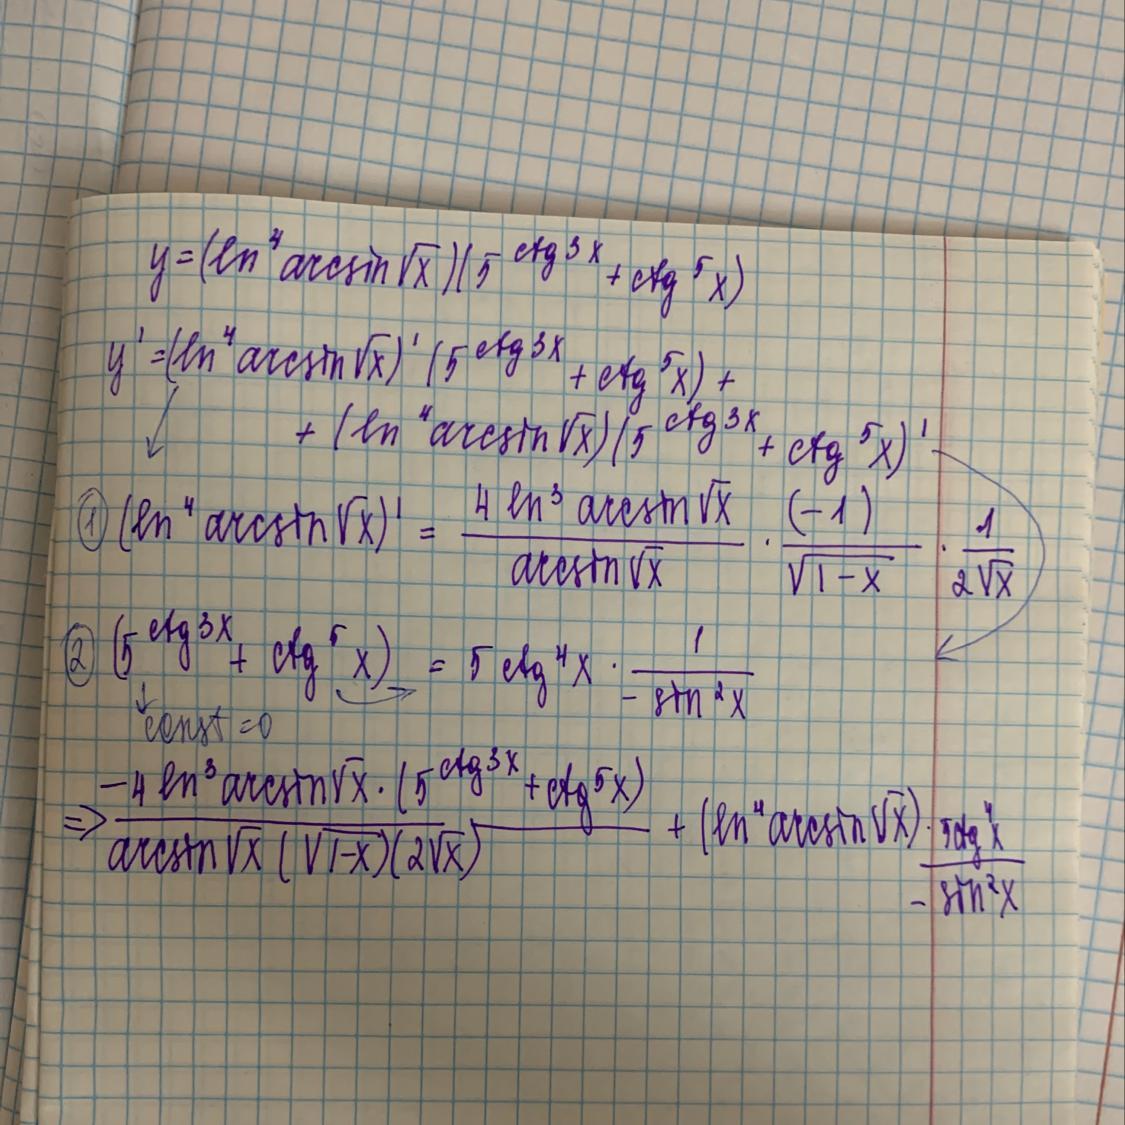 y = (ln⁴ arcsin √x)(5^(ctg 3x) + ctg⁵x)
y' = (ln⁴ arcsin √x)' (5^(ctg 3x) + ctg⁵x) +
+ (ln⁴ arcsin √x)(5^(ctg 3x) + ctg⁵x)'
① (ln⁴ arcsin √x)' = (4 ln³ arcsin √x)/(arcsin √x) · (-1)/(√(1-x)) · 1/(2√x)
② (5^(ctg 3x) + ctg⁵x) = 5 ctg⁴x · 1/(-sin²x)
const = 0
=> (-4 ln³ arcsin √x · (5^(ctg 3x) + ctg⁵x))/(arcsin √x (√(1-x))(2√x)) + (ln⁴ arcsin √x) · (5ctg⁴x)/(-sin²x)